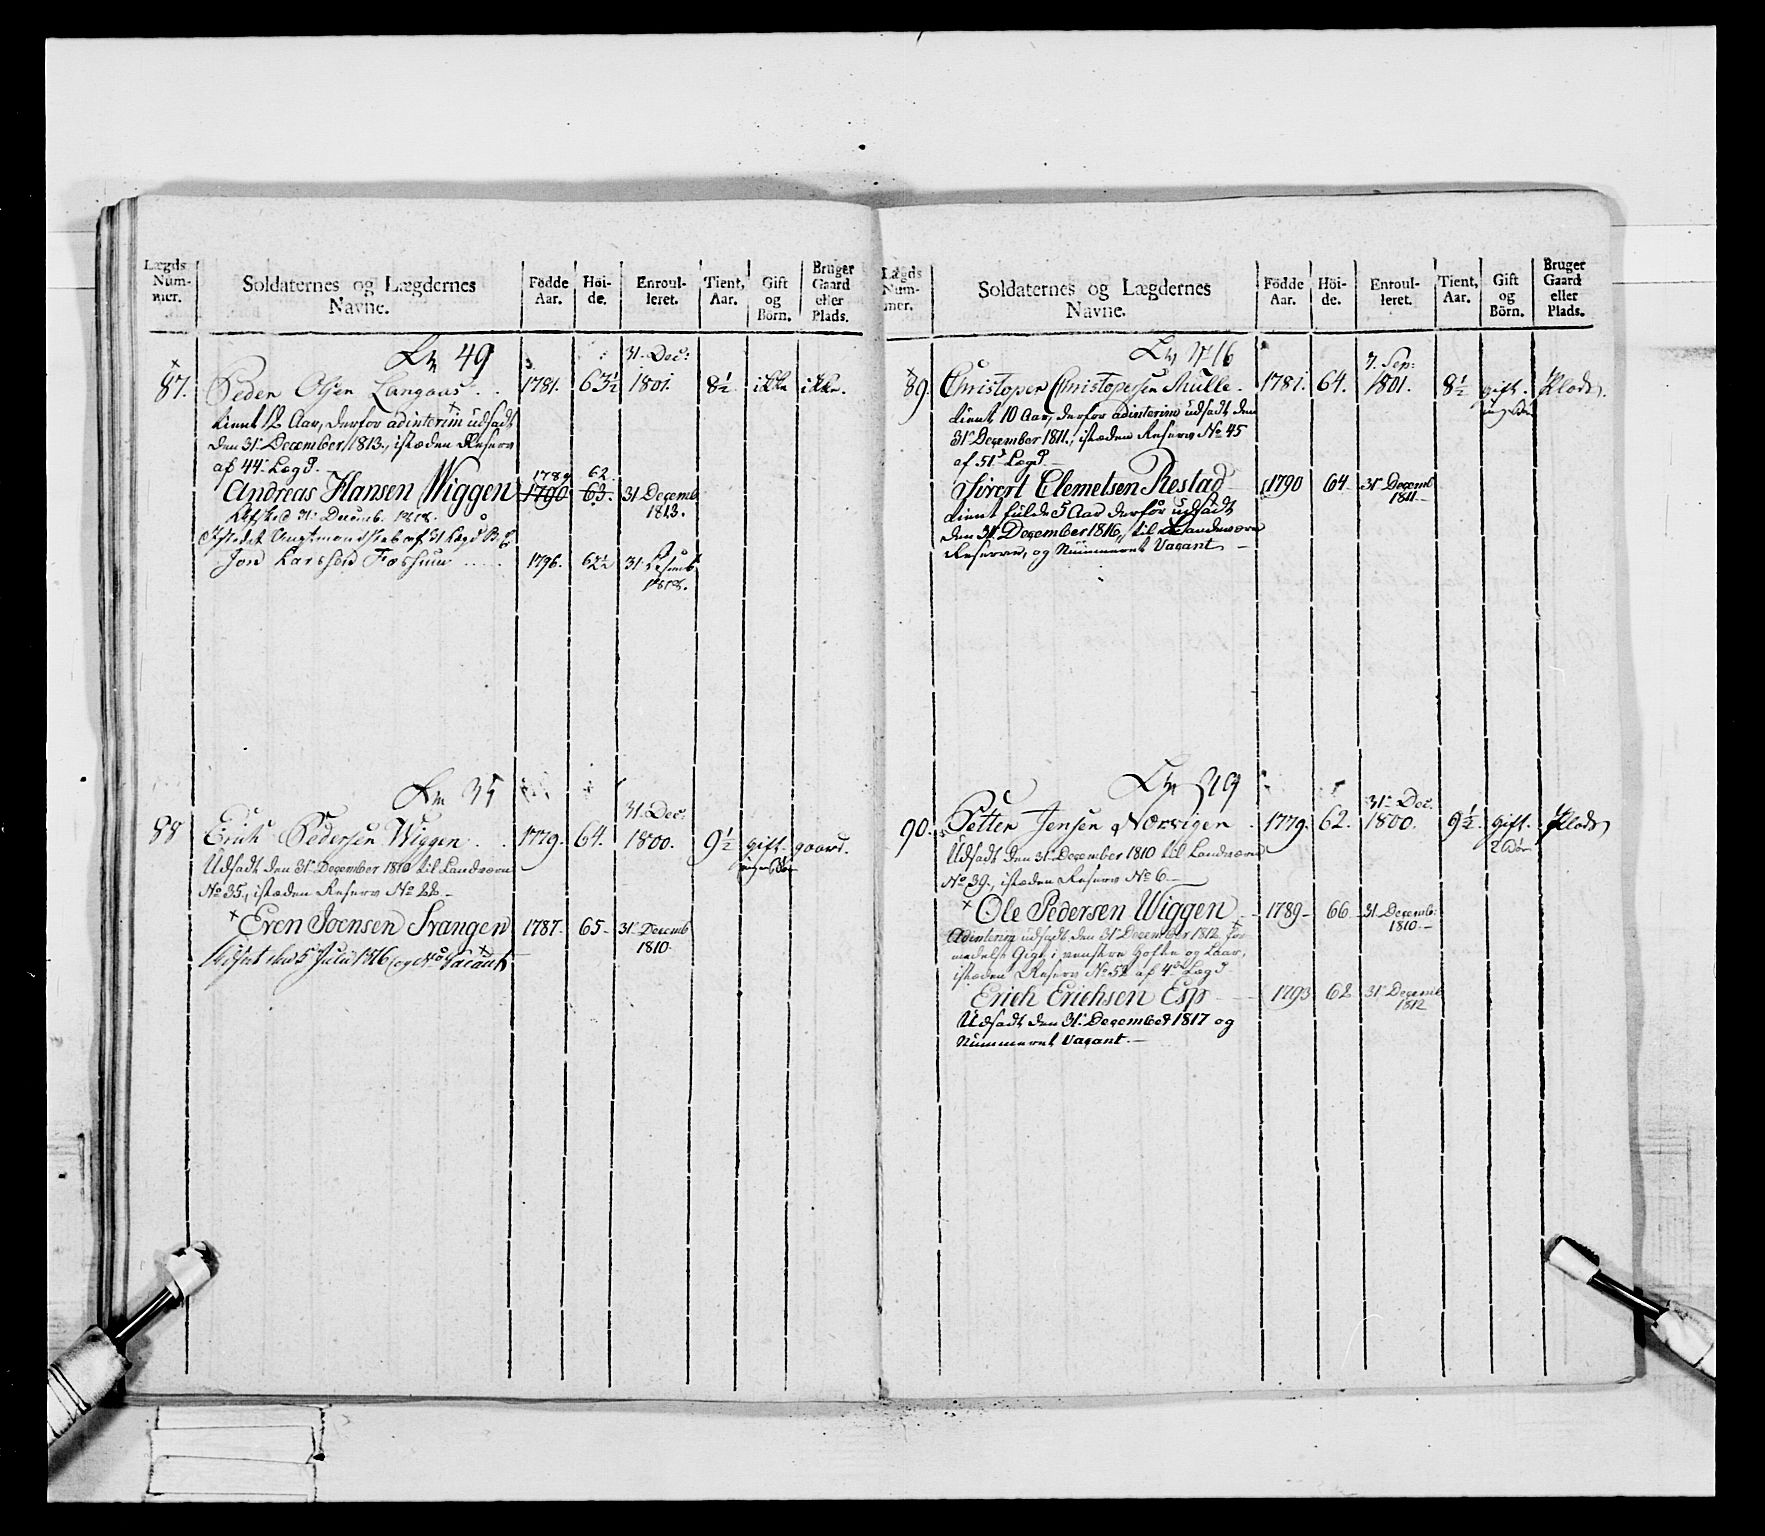 Lægds Num-mer.
Soldaternes og Lægdernes Navne.
Födde Aar.
Höi-de.
Enroul-leret.
Tient, Aar.
Gift og Börn.
Bruger Gaard eller Plads.
49
31. Dec:
87. Peder Olsen Langaas . . 1781. 63½ 1801. 8½ ikke ikke.
tient 12 Aar, derfor adinterim udsadt
den 31te December 1813., istæden Reserv
af 44de Lægd.
1789 62.
Andreas Hansen Wiggen 1790 63. 31 Decemb
1813.
Afsked 31te Decemb. 1818.
af 31 Lægd
Jon Larssen Foshuus ..... 1796. 62½ 31 Decemb
1818.
35
31. Dec:
88 Erich Pedersen Wiggen . . 1779. 64. 1800. 9½ gift. gaard.
Udsadt den 31te December 1810 til Landværn
No 35., istæden Reserv No 22 -
Even Joensen Svangen 1787. 65- 31te Decemb
1810.
den 5 Julii 1816 og No Vacant
Lægds Num-mer.
Soldaternes og Lægdernes Navne.
Födde Aar.
Höi-de.
Enroul-leret.
Tient, Aar.
Gift og Börn.
Bruger Gaard eller Plads.
7. Sep:
89. Christopher Christophersen Mulle. 1781. 64. 1801. 8½ gift. Plads.
tient 10 Aar, derfor adinterim udsadt den
31te December 1811., istæden Reserv No 45
af 51de Lægd.
Sivert Clemetsen Restad 1790 64 31te Decemb
1811.
tient fulde 5 Aar derfor udsadt
den 31te December 1816, til Landeværn
Reserven, og Nummeret Vacant -
31te Dec.
90. Petter Jensen Nervigen . 1779. 62. 1800. 9½. gift. Plads
2 Bör
Udsadt den 31te December 1810 til Landværn
No 39., istæden Reserv No 6.-
Ole Pedersen Wiggen 1789- 66- 31 Decemb:
1810.-
Adinterim udsadt den 31te December 1812 for-
medelst Gigt i venstre Hofte og Laar,
istæden Reserv No 52 af 4de Lægd
Erich Erichsen Esp 1793 62 31te Decemb
1812
Udsadt den 31te December 1817 og
Nummeret Vacant.-